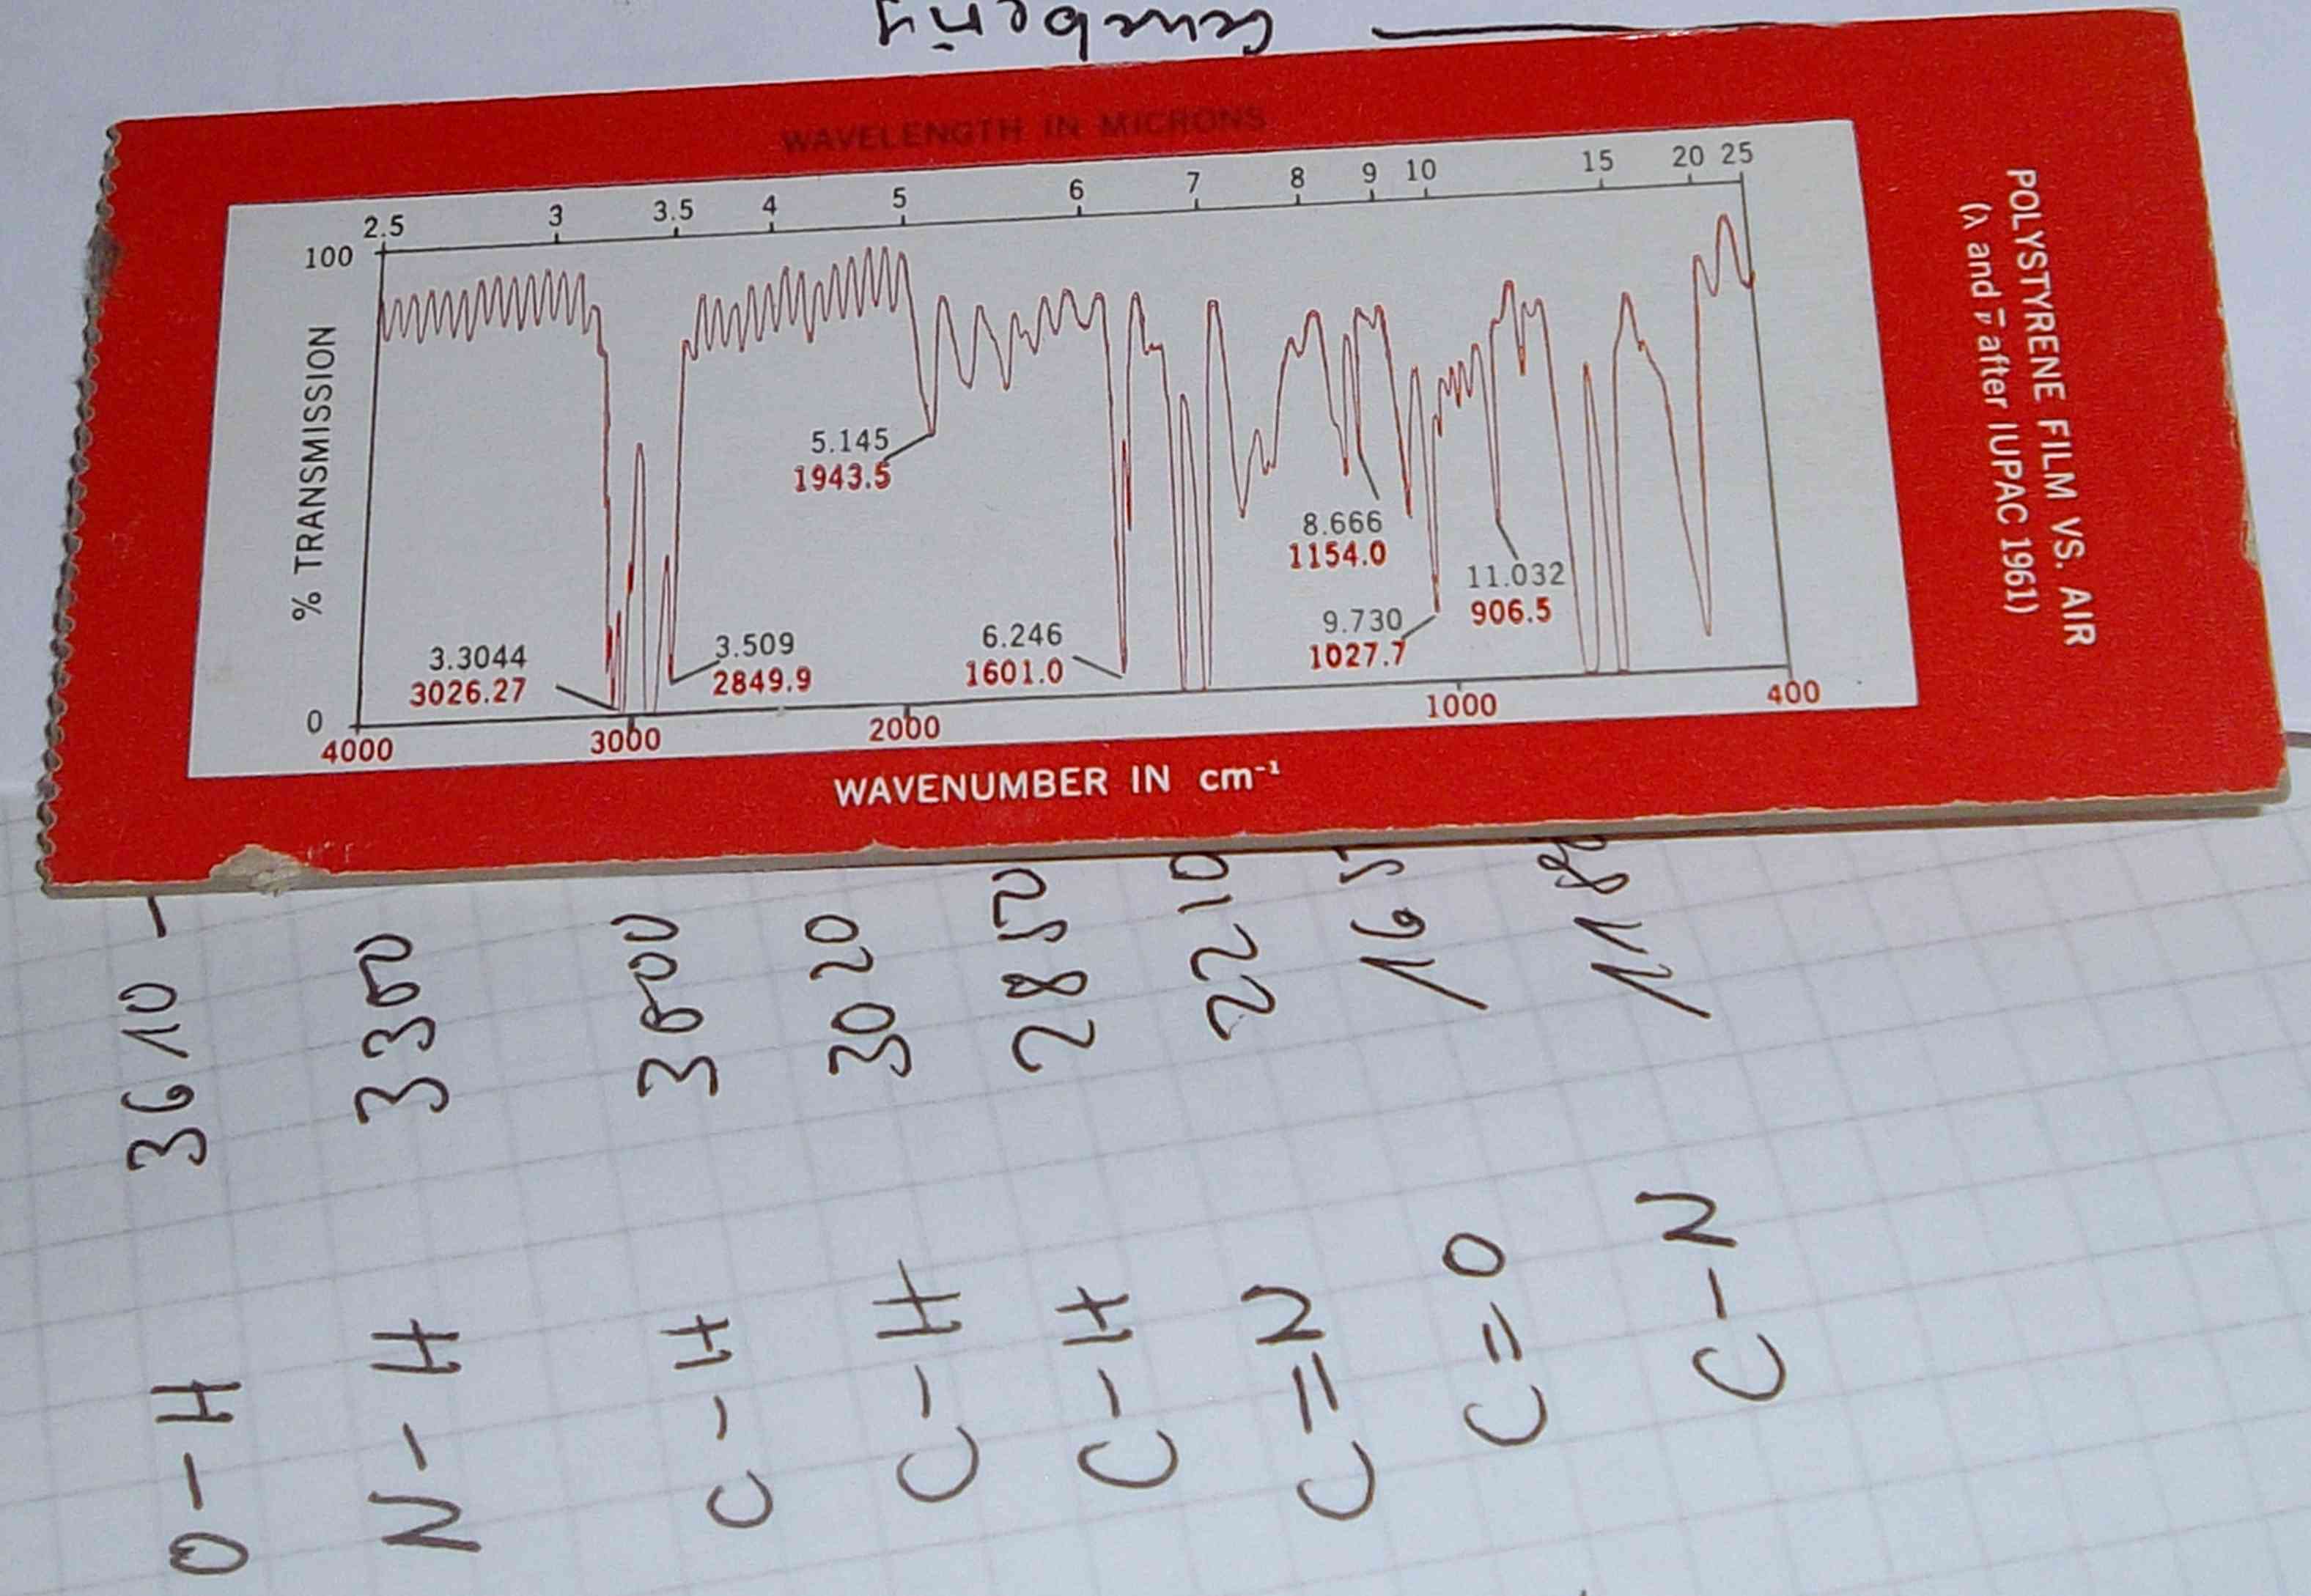 WAVELENGTH IN MICRONS
2.5 3 3.5 4 5 6 7 8 9 10 15 20 25
100
% TRANSMISSION
0
5.145
1943.5
8.666
1154.0
11.032
906.5
9.730
1027.7
3.3044
3026.27
3.509
2849.9
6.246
1601.0
4000 3000 2000 1000 400
WAVENUMBER IN cm⁻¹
POLYSTYRENE FILM VS. AIR
(λ and ν̅ after IUPAC 1961)
O-H 3610 -
N-H
C-H
C-H 3020
C-H 2850
C=N 2210
C=O 165
C-N 118